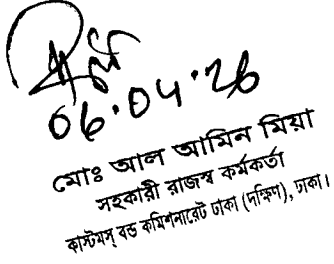 06.04.26
মোঃ আল আমিন মিয়া
সহকারী রাজস্ব কর্মকর্তা
কাস্টমস্ বন্ড কমিশনারেট ঢাকা (দক্ষিণ), ঢাকা।